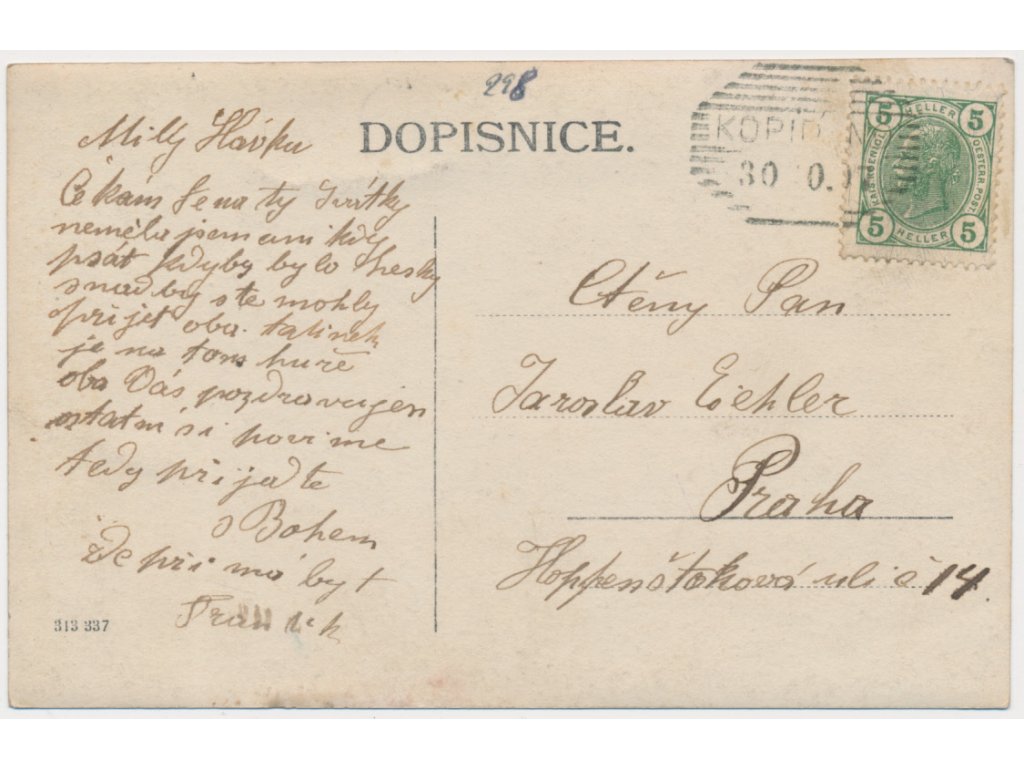 298
DOPISNICE.
KOPIDLN
30 10.
5 HELLER 5
KAIS. KOENIGL. OESTERR. POST.
5 HELLER 5
Milly Slávku
Čekám Se na ty Svátky
neměla jsem ani kdy
psát kdyby bylo hesky
snad by ste mohly
přijet oba. tatinek
je na tom huře
oba Vás pozdravujen
ostatni si povime
tedy přijedte
s Bohem
Zde při má byt
Frant
313 337
Ctěny Pan
Jaroslav Eichler
Praha
Hoppenštoková uli č 14.